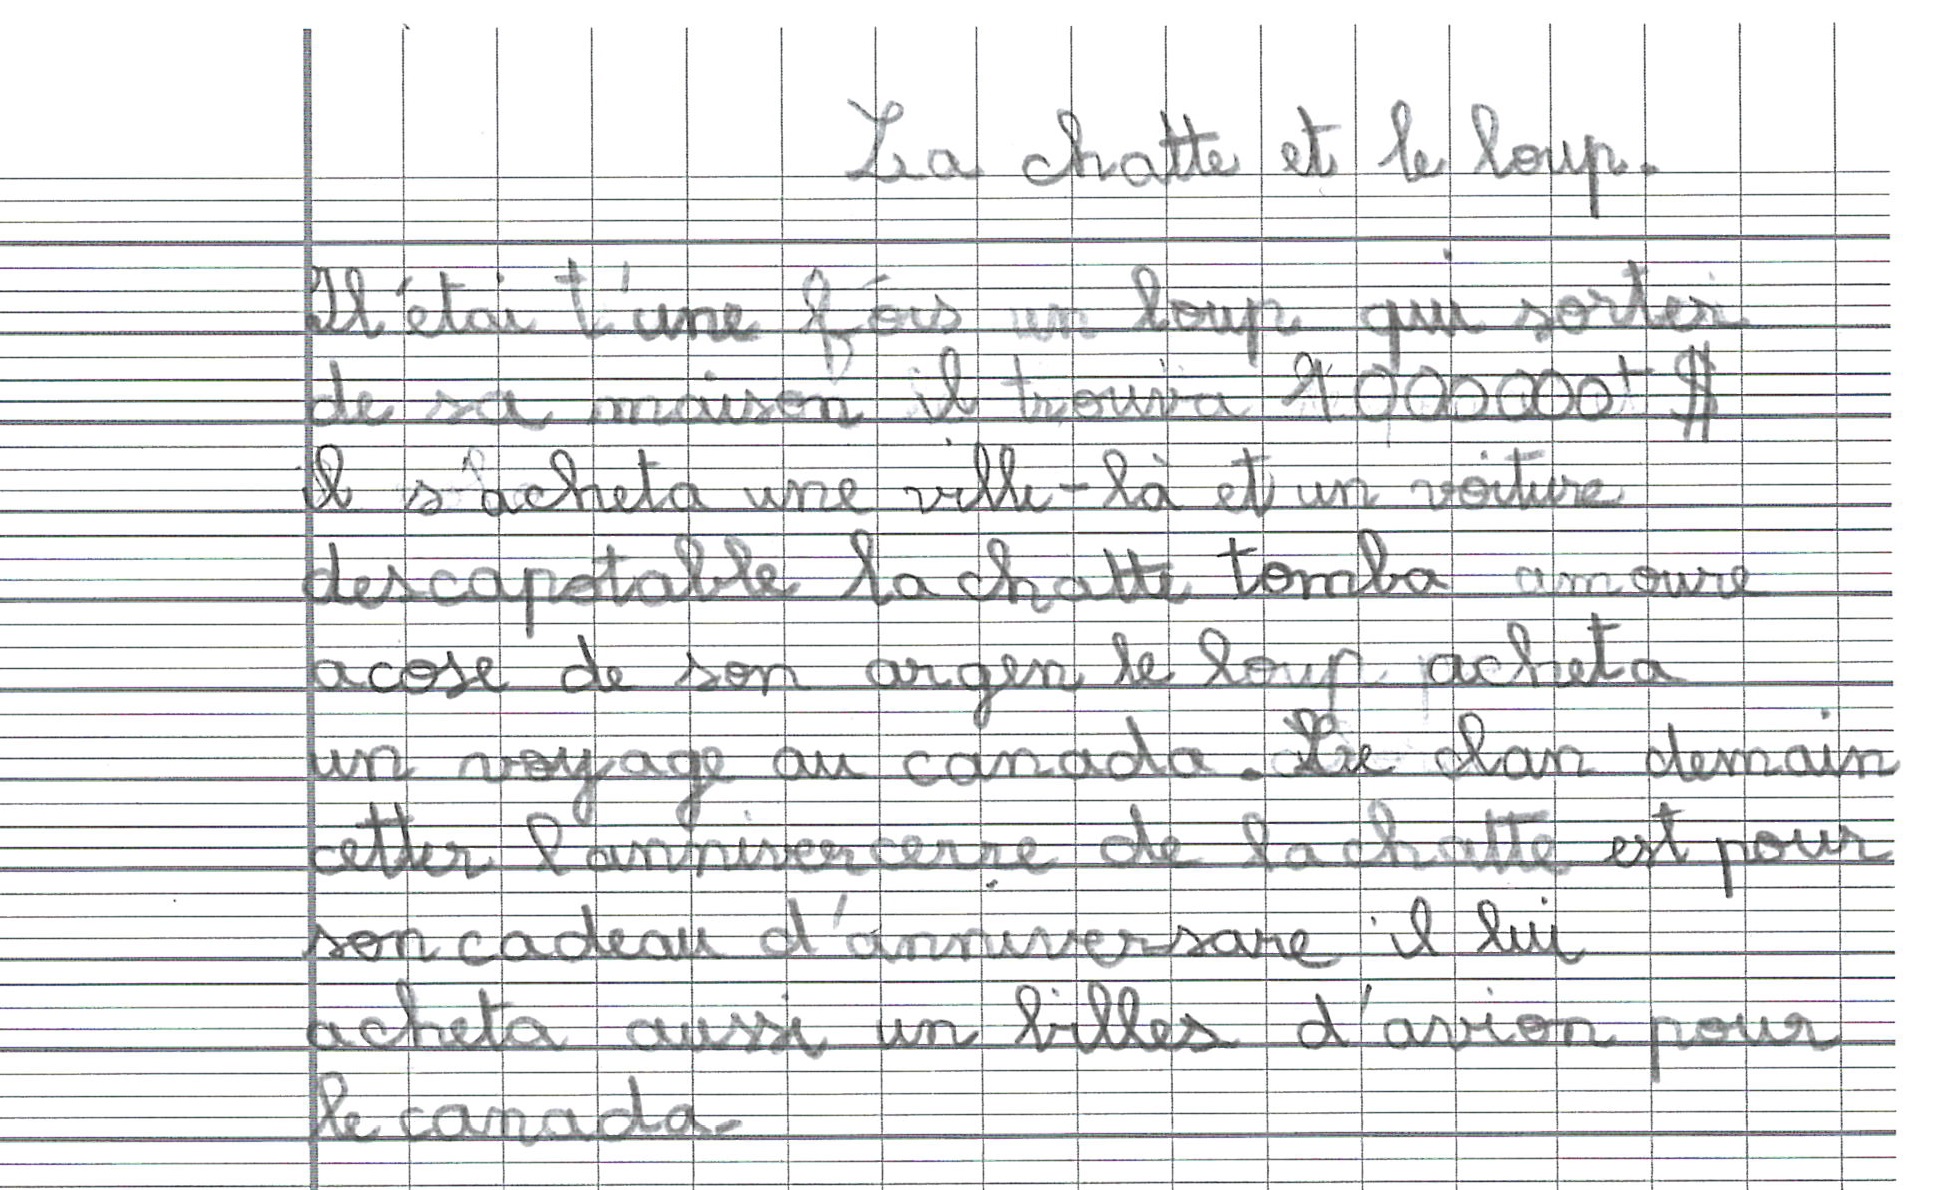 La chatte et le loup.
Il étai t'une fois un loup qui sortei
de sa maison il trouva 1000000 $
Il s'acheta une ville-là et un voiture
descapotable la chatte tomba amoure
acose de son argen le loup acheta
un voyage au canada. Le lan demain
cetter l'annivercerre de la chatte est pour
son cadeau d'anniversare il lui
acheta aussi un billes d'avion pour
le canada.